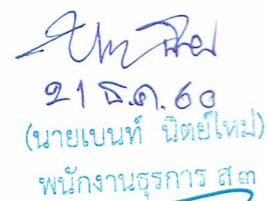 21 ธ.ค. 60
(นายเบนท์ นิตย์ใหม่)
พนักงานธุรการ ส ๓